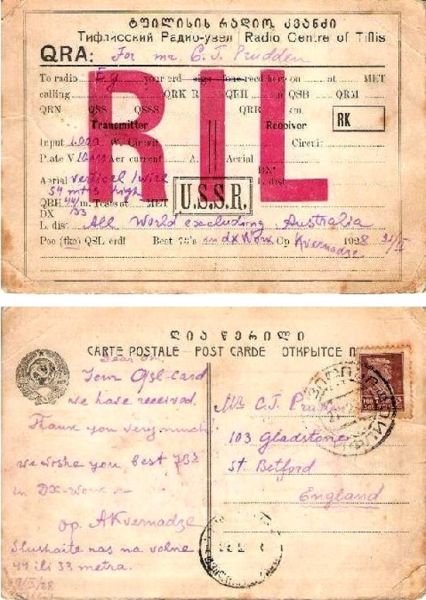 ტფილისის რადიო კვანძი
Тифлисский Радио-узел | Radio Centre of Tiflis
QRA: For mr. C. J. Prudden
To radio Eg your crd sigs fone recd here on nt MET
calling QRK R QRH on QSB QRM
QRN QSS QSSS QRH
RIL
Transmitter Receiver RK
Input 1.000 W. Circuit Circuit
Plate V Aer current A. Aerial
Aerial vertical wire DX:
54 mtrs high L dist:
QRH 44/33 m. Tests at MET
DX
U.S.S.R.
L dist: All World excluding Australia
Pse (tks) QSL crd! Best 73's and DX Wrk Op Kvernadze 1928 31/V
ღია წერილი
CARTE POSTALE - POST CARDE ОТКРЫТСЕ П
Dear Om.
Your QSL-card
we have received.
Thank you very much
we wishe you best 73s
in DX-work
op. AKvernadze
Slushaite nas na volne
44 ili 33 metra.
Mr C.J. Prudden
103 Gladstone
St. Betford
England